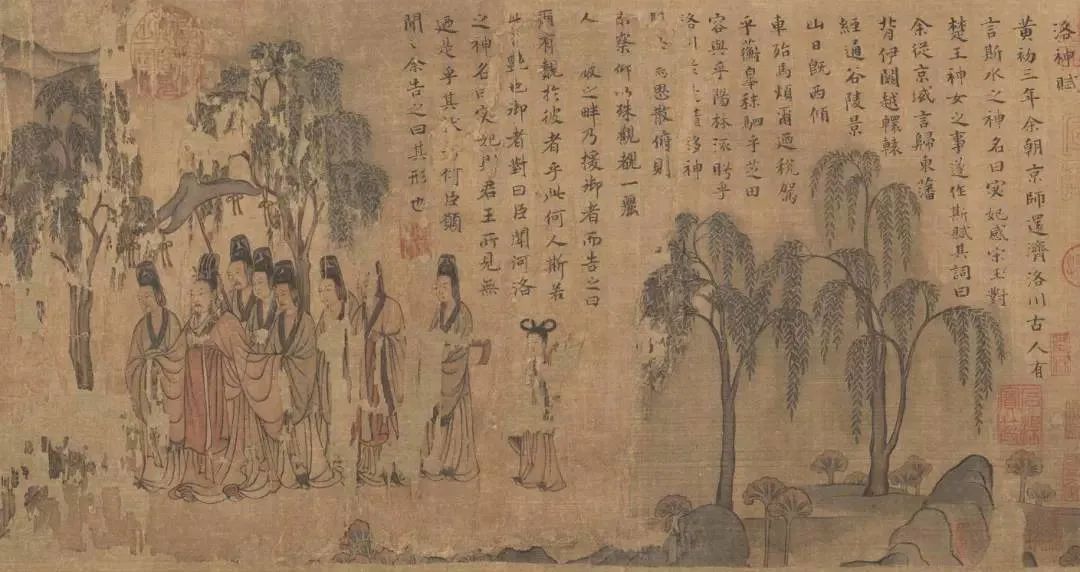 洛神賦
黃初三年余朝京師還濟洛川古人有
言斯水之神名曰宓妃感宋玉對
楚王神女之事遂作斯賦其詞曰
余從京域言歸東藩
背伊闕越轘轅
經通谷陵景
山日既西傾
車殆馬煩爾迺稅駕
乎蘅皋秣駟乎芝田
容與乎陽林流眄乎
洛川於是精移神
思散俯則
未察仰以殊觀覩一麗
人之畔乃援御者而告之曰
爾有覿於彼者乎此何人斯若
此艷也御者對曰臣聞河洛
之神名曰宓妃則君王所見無
迺是乎其何臣願
聞之余告之曰其形也